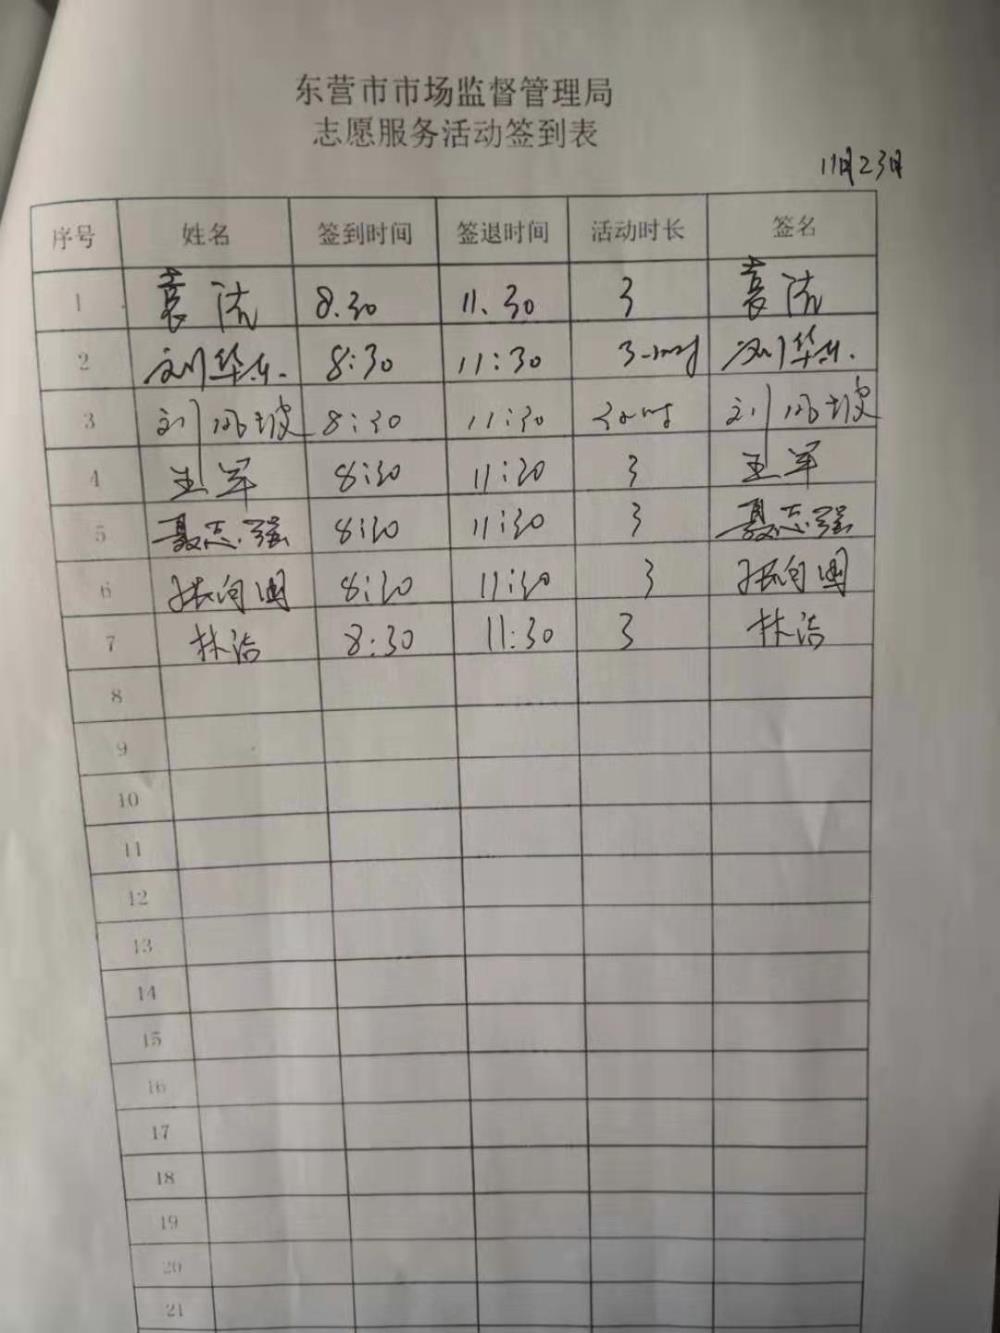 东营市市场监督管理局
志愿服务活动签到表
11月23日
序号 姓名 签到时间 签退时间 活动时长 签名
1 袁 8.30 11.30 3 袁
2 刘华 8:30 11:30 3 刘华
3 刘 坡 8:30 11:30 刘 坡
4 王军 8:30 11:30 3 王军
5 聂志强 8:30 11:30 3 聂志强
6 张向国 8:30 11:30 3 张向国
7 林洁 8:30 11:30 3 林洁
8
9
10
11
12
13
14
15
16
17
18
19
20
21